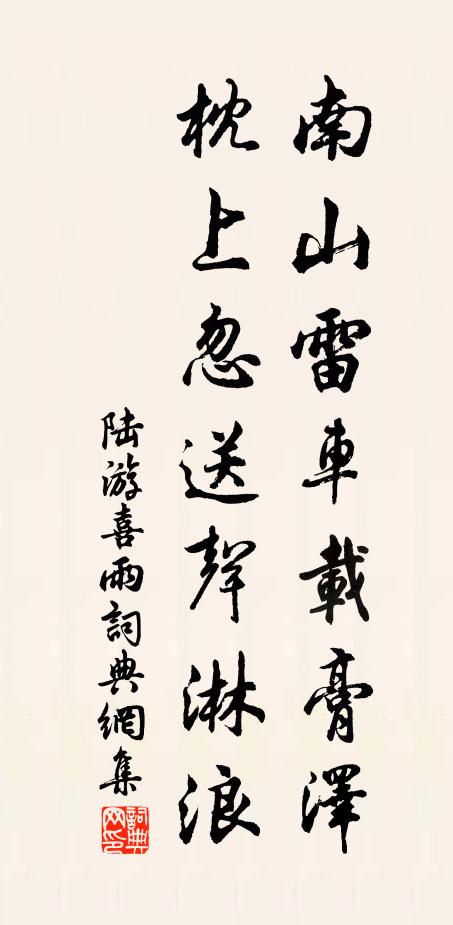 南山雷車載膏澤
枕上忽送聲淋浪
陆游喜雨詞典網集
詞典网印